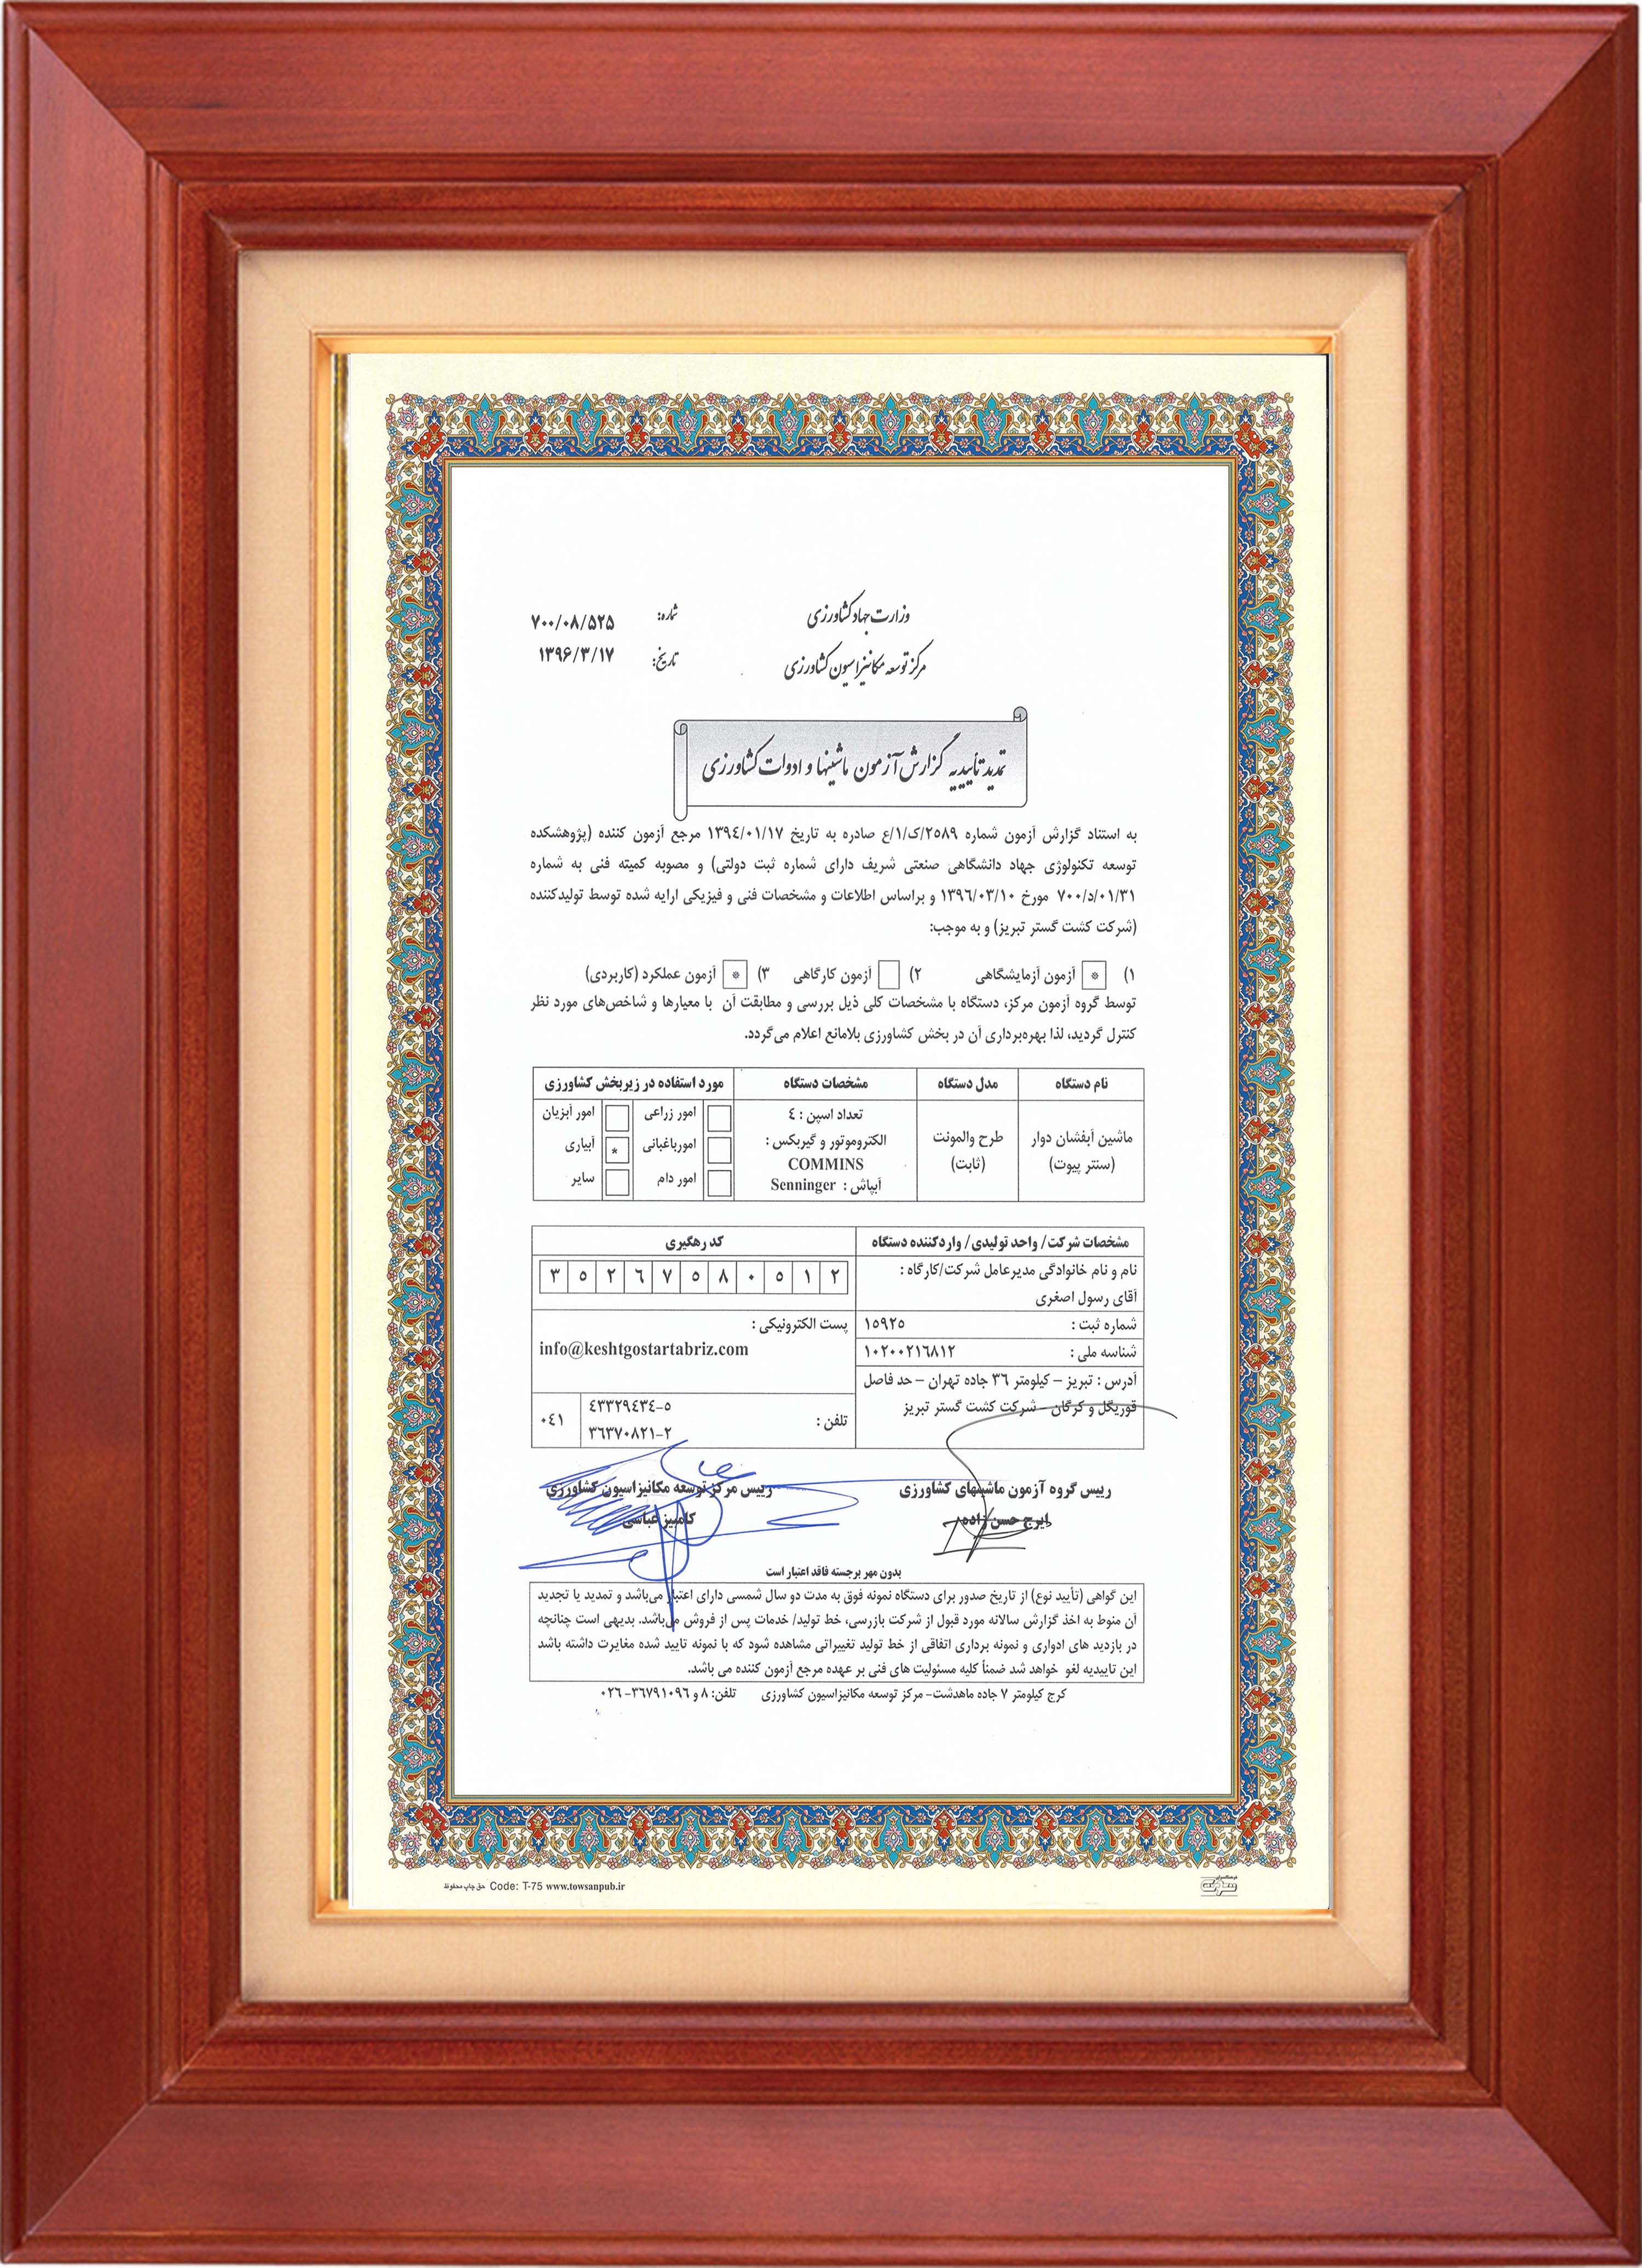 وزارت جهاد کشاورزی
مرکز توسعه مکانیزاسیون کشاورزی
شماره: ۷۰۰/۰۸/۵۲۵
تاریخ: ۱۳۹۶/۳/۱۷
تمدید تأییدیه گزارش آزمون ماشینها و ادوات کشاورزی
به استناد گزارش آزمون شماره ۲۵۸۹/ک/۱/ع صادره به تاریخ ۱۳۹٤/۰۱/۱۷ مرجع آزمون کننده (پژوهشکده
توسعه تکنولوژی جهاد دانشگاهی صنعتی شریف دارای شماره ثبت دولتی) و مصوبه کمیته فنی به شماره
۷۰۰/د/۰۱/۳۱ مورخ ۱۳۹٦/۰۳/۱۰ و براساس اطلاعات و مشخصات فنی و فیزیکی ارایه شده توسط تولیدکننده
(شرکت کشت گستر تبریز) و به موجب:
۱) * آزمون آزمایشگاهی ۲) آزمون کارگاهی ۳) * آزمون عملکرد (کاربردی)
توسط گروه آزمون مرکز، دستگاه با مشخصات کلی ذیل بررسی و مطابقت آن با معیارها و شاخص‌های مورد نظر
کنترل گردید، لذا بهره‌برداری آن در بخش کشاورزی بلامانع اعلام می‌گردد.
نام دستگاه مدل دستگاه مشخصات دستگاه مورد استفاده در زیربخش کشاورزی
ماشین آبفشان دوار
(سنتر پیوت)
طرح والمونت
(ثابت)
تعداد اسپن : ٤
الکتروموتور و گیربکس :
COMMINS
آبپاش : Senninger
امور زراعی امور آبزیان
امورباغبانی * آبیاری
امور دام سایر
مشخصات شرکت/ واحد تولیدی/ واردکننده دستگاه
نام و نام خانوادگی مدیرعامل شرکت/کارگاه :
آقای رسول اصغری
شماره ثبت : ۱۵۹۲۵
شناسه ملی : ۱۰۲۰۰۲۱٦۸۱۲
آدرس : تبریز – کیلومتر ۳٦ جاده تهران – حد فاصل
قوریگل و کرگان – شرکت کشت گستر تبریز
کد رهگیری
۳ ۵ ۲ ٦ ۷ ۵ ۸ ۰ ۵ ۱ ۲
پست الکترونیکی :
info@keshtgostartabriz.com
تلفن : ٤۳۳۲۹٤۳٤-۵
۳٦۳۷۰۸۲۱-۲
۰٤۱
رییس گروه آزمون ماشینهای کشاورزی
ایرج حسن زاده
رییس مرکز توسعه مکانیزاسیون کشاورزی
کامبیز عباسی
بدون مهر برجسته فاقد اعتبار است
این گواهی (تأیید نوع) از تاریخ صدور برای دستگاه نمونه فوق به مدت دو سال شمسی دارای اعتبار می‌باشد و تمدید یا تجدید
آن منوط به اخذ گزارش سالانه مورد قبول از شرکت بازرسی، خط تولید/ خدمات پس از فروش می‌باشد. بدیهی است چنانچه
در بازدید های ادواری و نمونه برداری اتفاقی از خط تولید تغییراتی مشاهده شود که با نمونه تایید شده مغایرت داشته باشد
این تاییدیه لغو خواهد شد ضمناً کلیه مسئولیت های فنی بر عهده مرجع آزمون کننده می باشد.
کرج کیلومتر ۷ جاده ماهدشت- مرکز توسعه مکانیزاسیون کشاورزی تلفن: ۸ و ۳٦۷۹۱۰۹٦-۰۲٦
حق چاپ محفوظ Code: T-75 www.towsanpub.ir